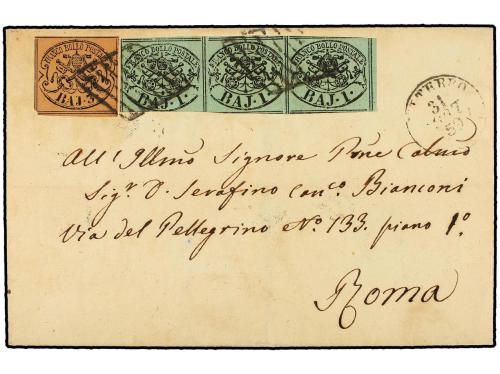 FRANCO BOLLO POSTALE FRANCO BOLLO POSTALE FRANCO BOLLO POSTALE FRANCO BOLLO POSTALE
BAJ. 3. BAJ. 1. BAJ. 1. BAJ. 1.
VITERBO
31
All' Illmo Signore Pne Colmo
Sigr. D. Serafino canco. Bianconi
Via del Pellegrino No. 133. piano 1o.
Roma